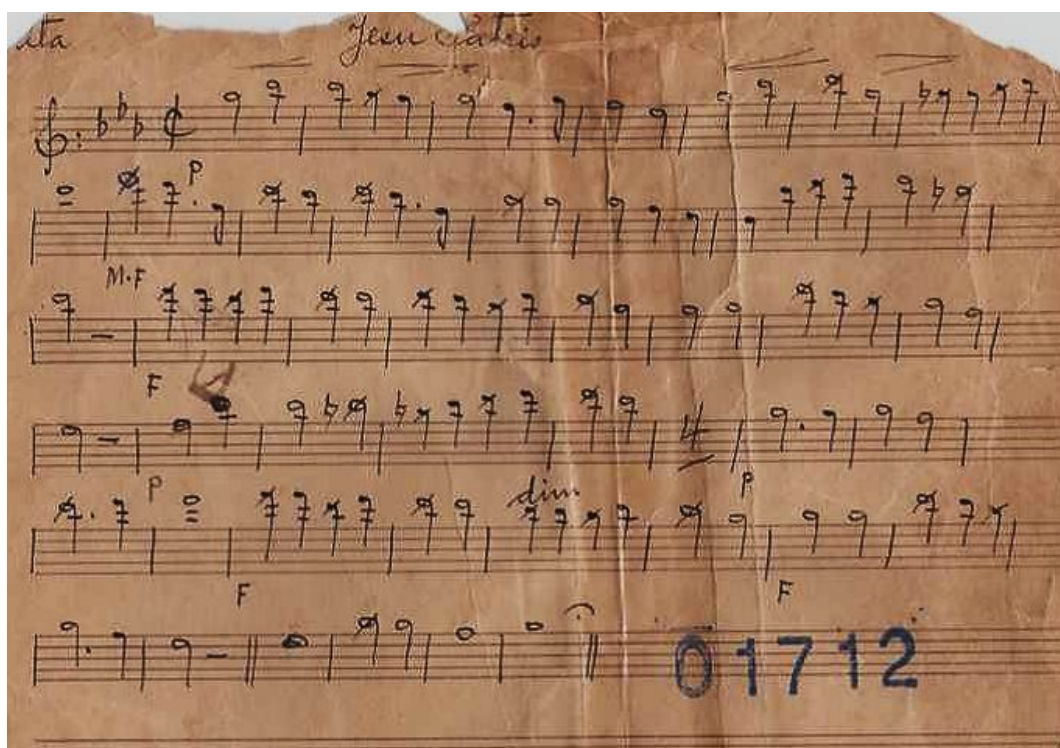 Jesu
P
M.F
F
4
P dim P
F F
01712